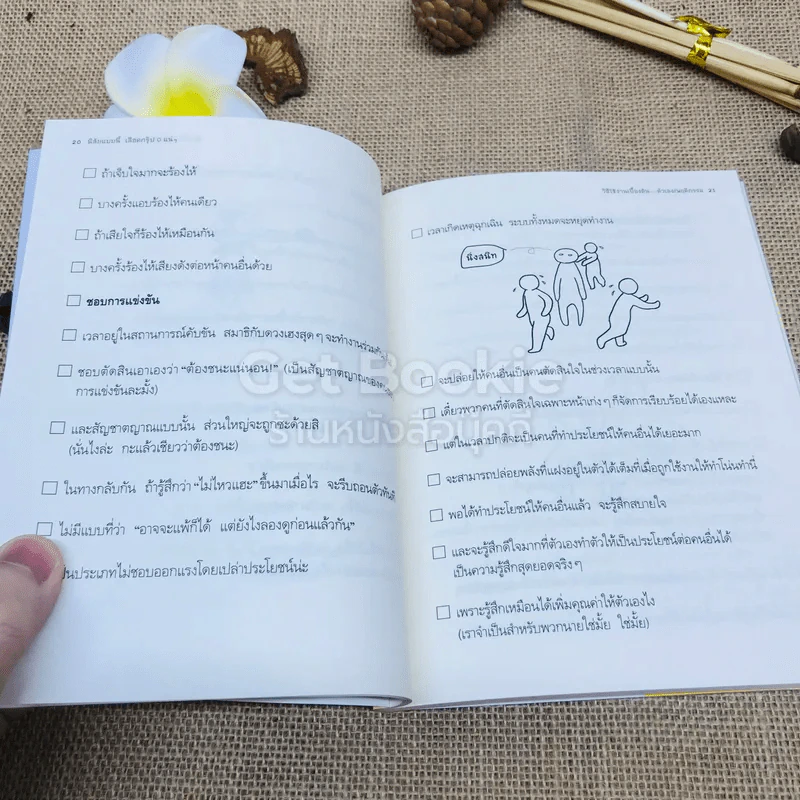 20 นิสัยแบบนี้ เลือดกรุ๊ป O แน่ๆ
ถ้าเจ็บใจมากจะร้องไห้
บางครั้งแอบร้องไห้คนเดียว
ถ้าเสียใจก็ร้องไห้เหมือนกัน
บางครั้งร้องไห้เสียงดังต่อหน้าคนอื่นด้วย
ชอบการแข่งขัน
เวลาอยู่ในสถานการณ์คับขัน สมาธิกับดวงเฮงสุดๆ จะทำงานร่วมกัน
ชอบตัดสินเอาเองว่า "ต้องชนะแน่นอน!" (เป็นสัญชาตญาณของ
การแข่งขันละมั้ง)
และสัญชาตญาณแบบนั้น ส่วนใหญ่จะถูกซะด้วยสิ
(นั่นไงล่ะ กะแล้วเชียวว่าต้องชนะ)
ในทางกลับกัน ถ้ารู้สึกว่า "ไม่ไหวแฮะ" ขึ้นมาเมื่อไร จะรีบถอนตัวทันที
ไม่มีแบบที่ว่า "อาจจะแพ้ก็ได้ แต่ยังไงลองดูก่อนแล้วกัน"
เป็นประเภทไม่ชอบออกแรงโดยเปล่าประโยชน์น่ะ
21
เวลาเกิดเหตุฉุกเฉิน ระบบทั้งหมดจะหยุดทำงาน
นิ่งสนิท
จะปล่อยให้คนอื่นเป็นคนตัดสินใจในช่วงเวลาแบบนั้น
เดี๋ยวพวกคนที่ตัดสินใจเฉพาะหน้าเก่งๆ ก็จัดการเรียบร้อยได้เองแหละ
แต่ในเวลาปกติจะเป็นคนที่ทำประโยชน์ให้คนอื่นได้เยอะมาก
จะสามารถปล่อยพลังที่แฝงอยู่ในตัวได้เต็มที่เมื่อถูกใช้งานให้ทำโน่นทำนี่
พอได้ทำประโยชน์ให้คนอื่นแล้ว จะรู้สึกสบายใจ
และจะรู้สึกดีใจมากที่ตัวเองทำตัวให้เป็นประโยชน์ต่อคนอื่นได้
เป็นความรู้สึกสุดยอดจริงๆ
เพราะรู้สึกเหมือนได้เพิ่มคุณค่าให้ตัวเองไง
(เราจำเป็นสำหรับพวกนายใช่มั้ย ใช่มั้ย)
Get Bookie
ร้านหนังสือบุคกี้